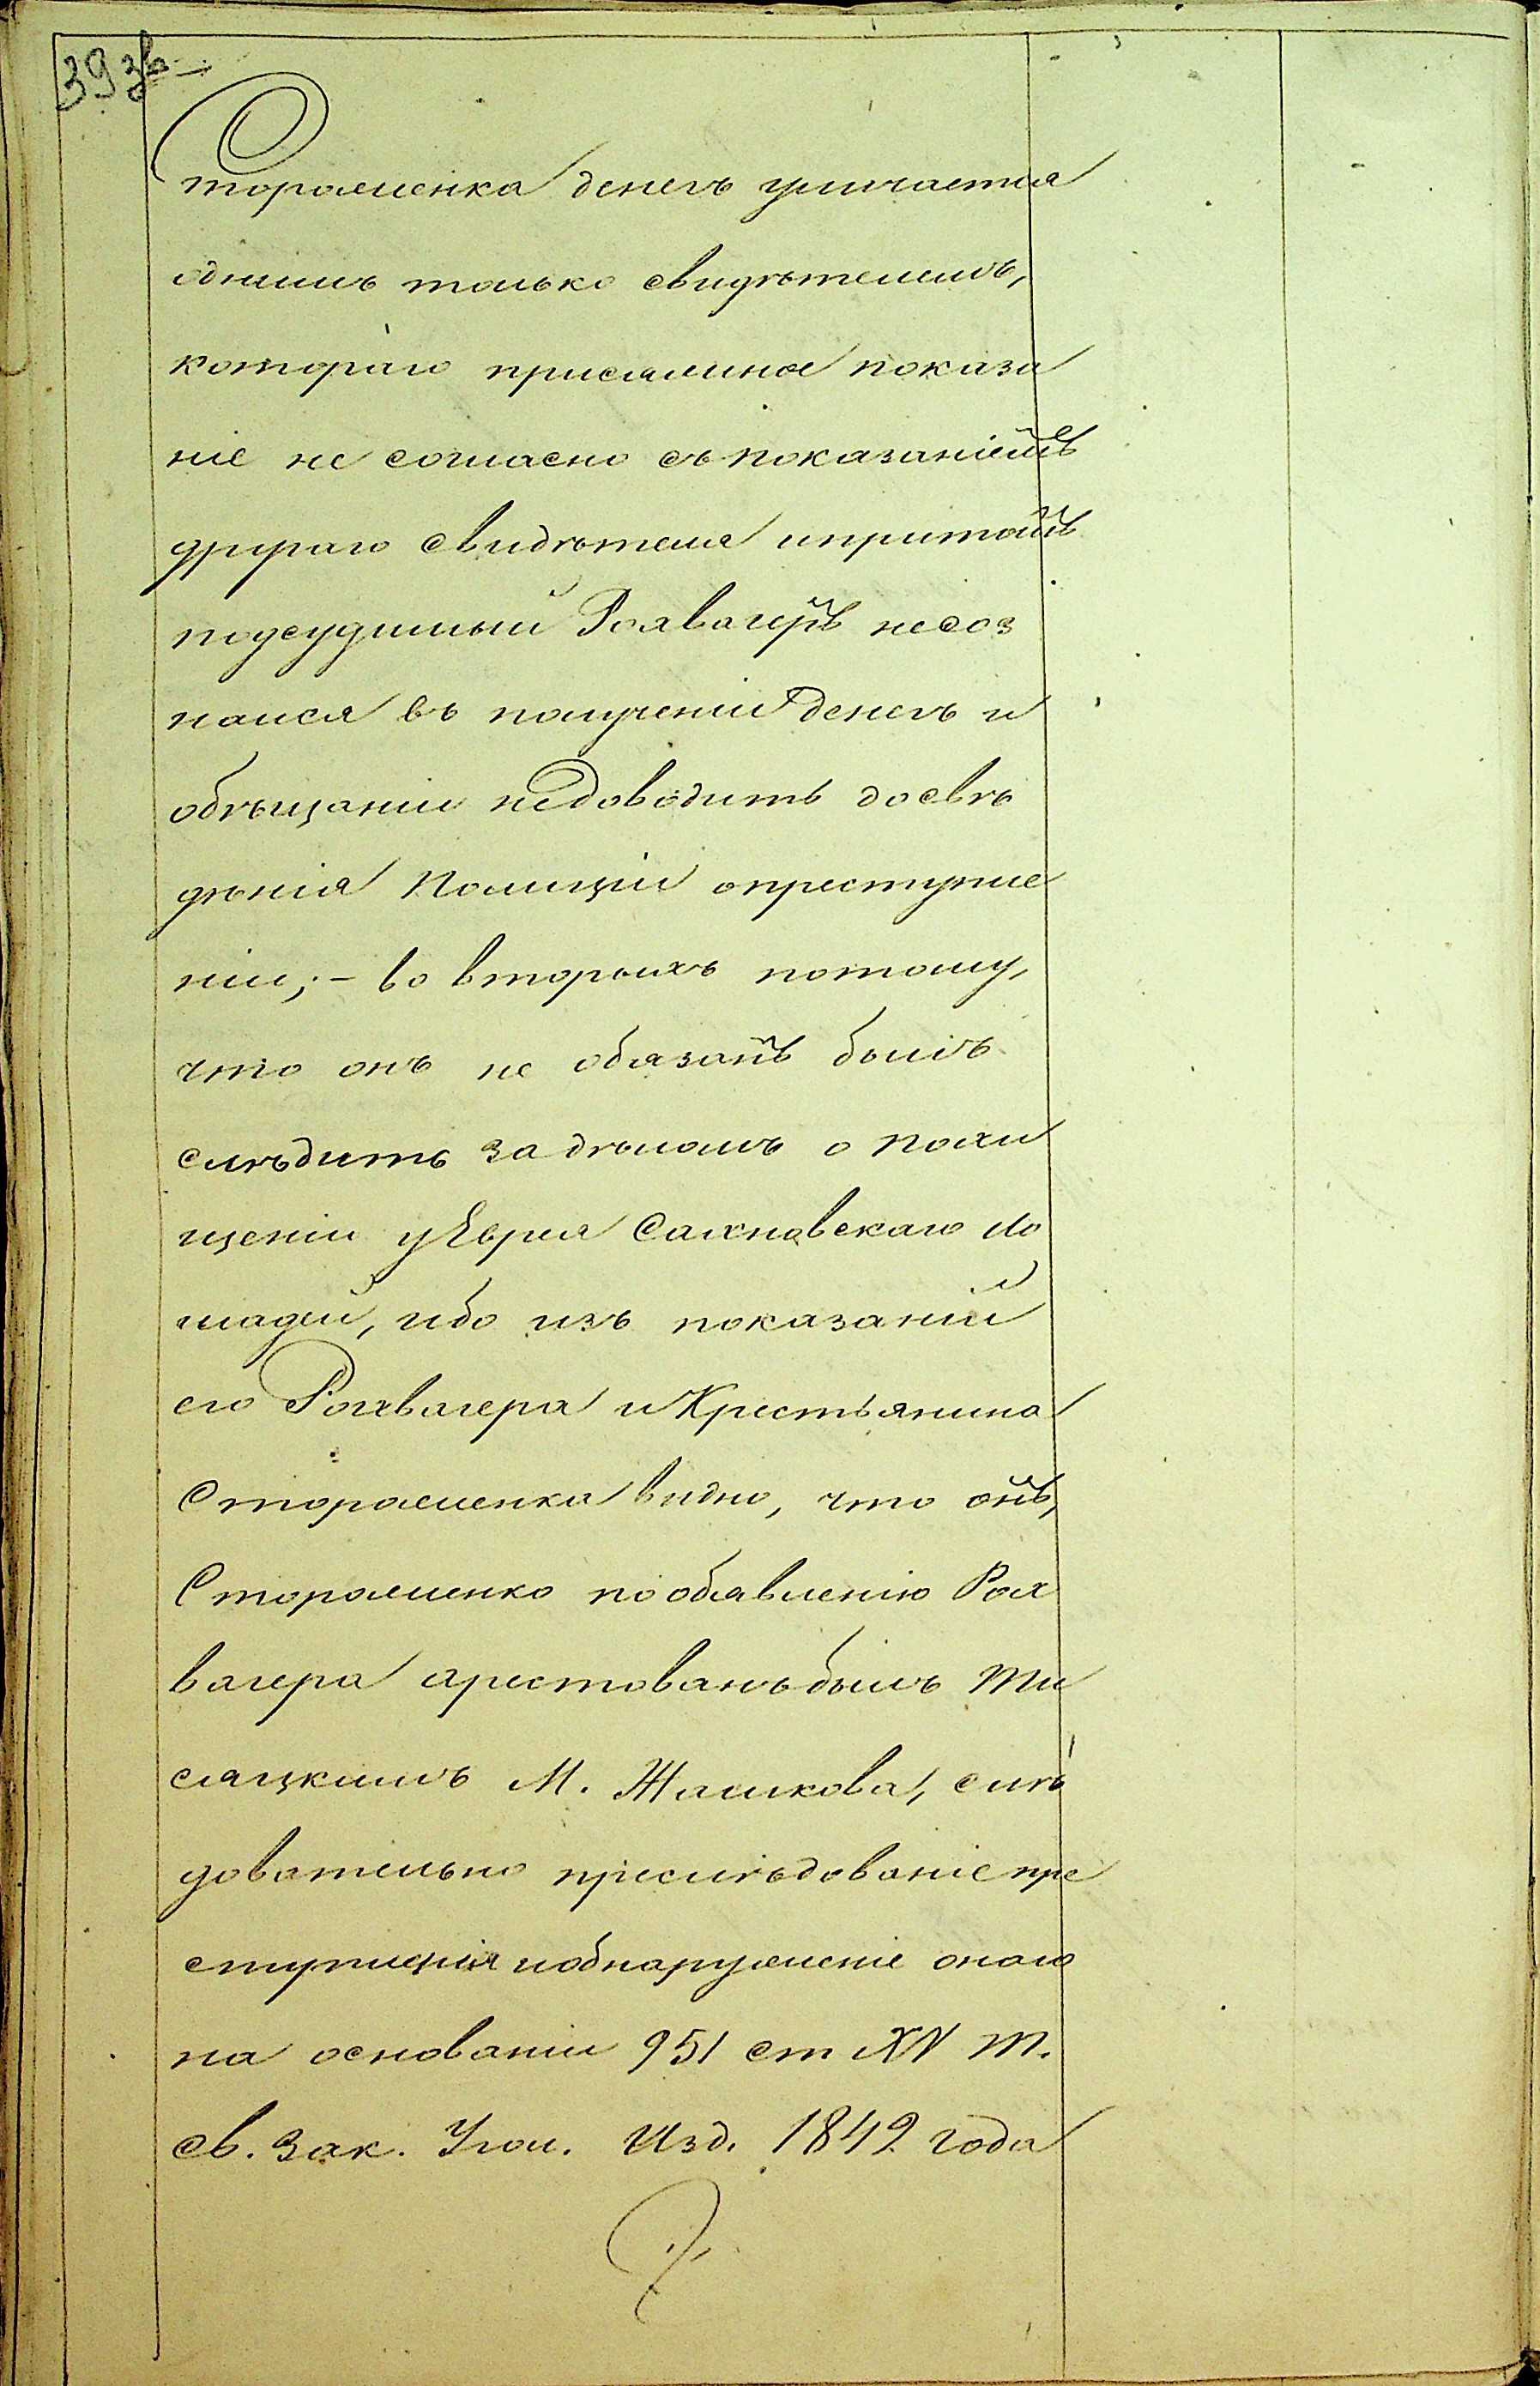 39 зв
Стороженка денегъ уличается
однимъ только свидѣтелемъ,
котораго присяжное показа
ніе не согласно съ показаніемъ
другаго свидѣтеля и притомъ
подсудимый Рохвагеръ не соз
нался въ полученіи денегъ и
обѣщаніи недоводить до свѣ
дѣнія Полиціи о преступле
ніи; – во вторыхъ потому,
что онъ не обязанъ былъ
слѣдить за дѣломъ о похи
щеніи у Еврея Сахновскаго ло
шадей, ибо изъ показаній
его Рохвагера и Крестьянина
Стороженка видно, что онъ,
Стороженко по объявленію Рох
вагера арестованъ былъ Ты
сяцкимъ М. Жашкова, слѣ
довательно преслѣдованіе пре
ступленія и обнаруженіе онаго
на основаніи 951 ст XV т.
св. зак. Угол. Изд. 1842 года